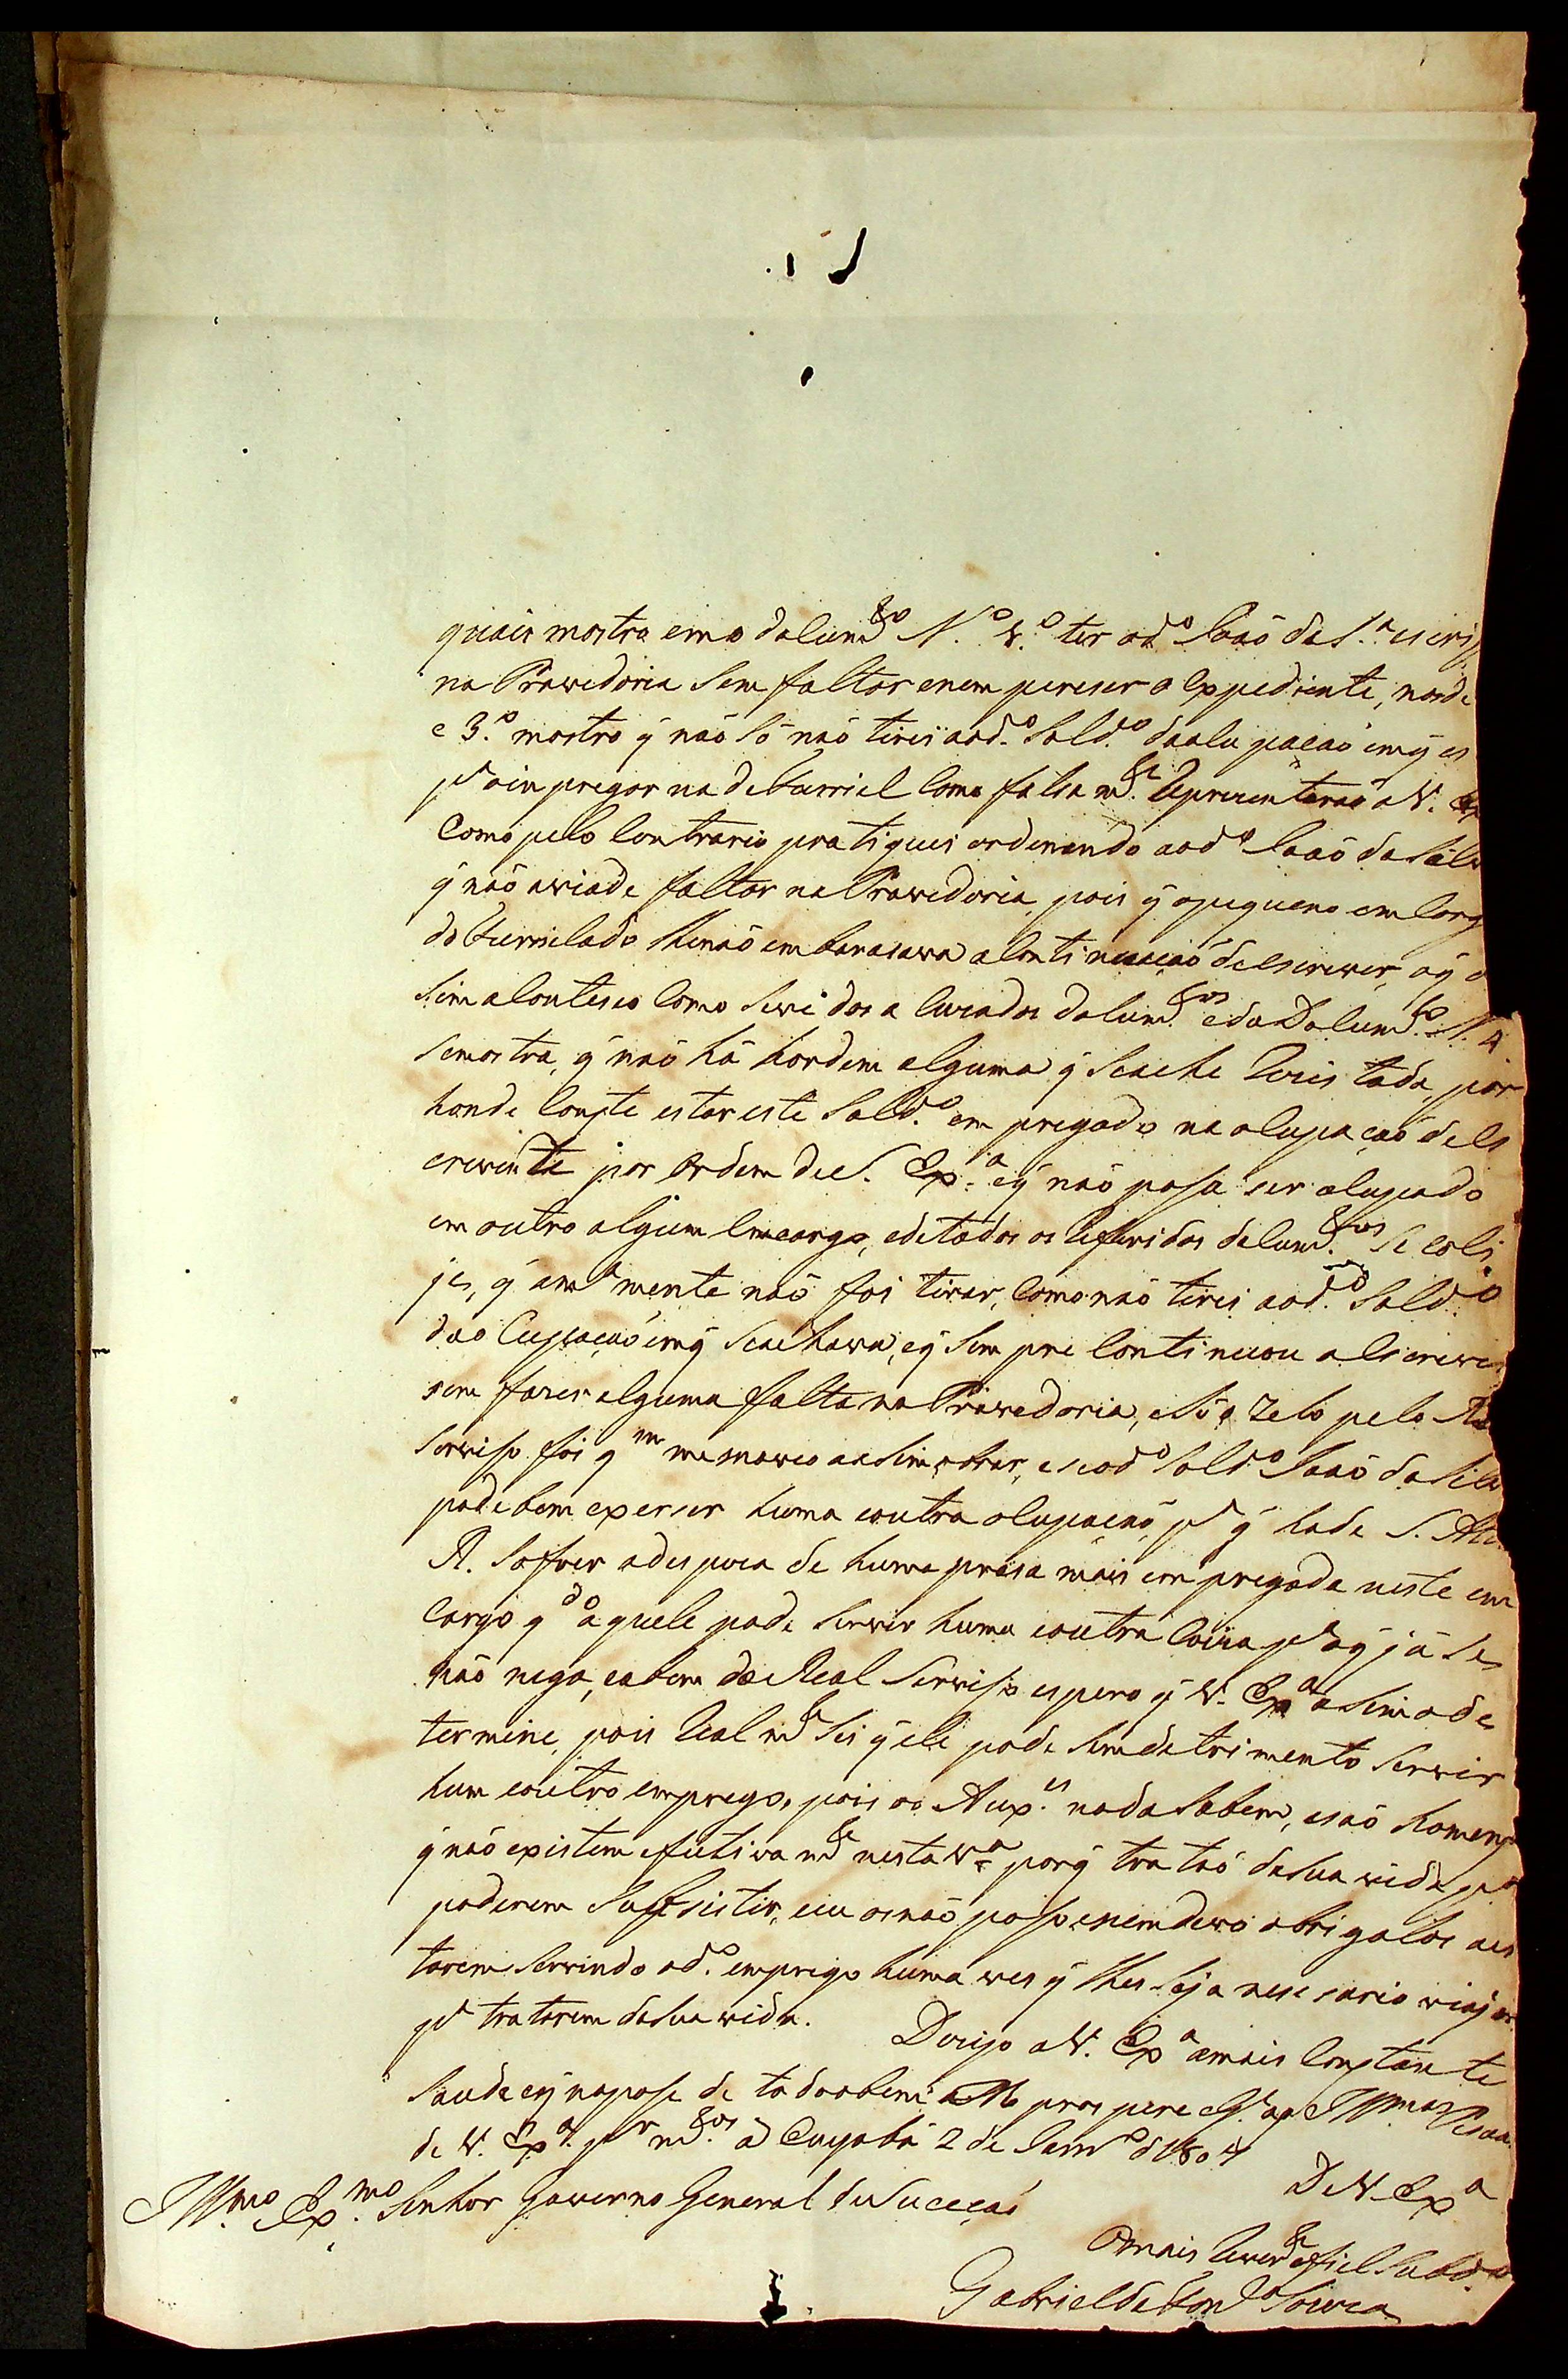 quais mostra emo dolumto N.o V.o ter odo João da S.a escris
na Provedoria Sem faltar enem pereser o Expediente, no de
e 3.o mostro q̃ naõ Só naõ tirei aod.o Sold.o daolupaçaõ emq̃ es
pa oin pregar na de furriel Como falsa mte Aprezentaraõ a V. Ex
Como pelo Contrario pratiquei ordenando aodo Joaõ da Silv
q̃ naõ aviade faltar na Provedoria, pois q̃ o pequeno em Carg
do furrielado lhe naõ embarasava a Continuaçaõ de escrever, oq̃ a
Sim a Contesco Como Sevê dos a Cuzados dolum.tos eda Dolum.to N. 4.
Semostra, q̃ naõ há hordem alguma q̃ Seache Rezistada, por
honde Conste estar este Sold.o em pregado na olupaçaõ de es
crevente por Ordem de S. Exa. eq̃ naõ posa ser olupado
em outro algum Emcargo, e de todos os Referidos dolum.tos Se coli
je, q̃ mente naõ foi tirar, Como naõ tirei aod.o Sold.o
da o Cupaçaõ emq̃ Seachava, eq̃ Sempre Continuou a Escrever
sem fazer alguma falta na Provedoria, e Só o Zelo pelo
Serviso foi qm me moveo aasim obrar, e se odo Soldo Joaõ da Silv
pode bem exerser huma eoutra olupaçaõ pa q̃ hade S.
R. Sofrer a despeza de huma praza mais em pregada neste em
Cargo qdo aquele pode Servir huma eoutra Coiza pa oq̃ já Se
naõ nega, eabem do Real Serviso espero q̃ V. Exa asim ode
termine, pois Real mte Sei q̃ ele pode Sem detrimento Servir
hum eoutro emprego, pois os Aux.es nada Sabem, esaõ homens
q̃ naõ existem efetiva mte nesta Va porq̃ trataõ da Sua vida, pa
poderem Subsistir, eeu os naõ poso, enem devo obrigalos aes
tarem Servindo od.o emprego huma ves q̃ lhes Seja nesesario viajar
pa tratarem da Sua vida.
Dezejo a V. Exa amais Constante
Saude eq̃ naposse de todo o bem prospere Illma Pesoa
de V. Exa. pr m.tos a Cuyabá 2 de Janro d 1804
De V. Exa
Illmo. Exmo. Senhor Governo General da Suceçaõ
Omais Reverte efiel Subd.o
Gabriel da Fonca Souza